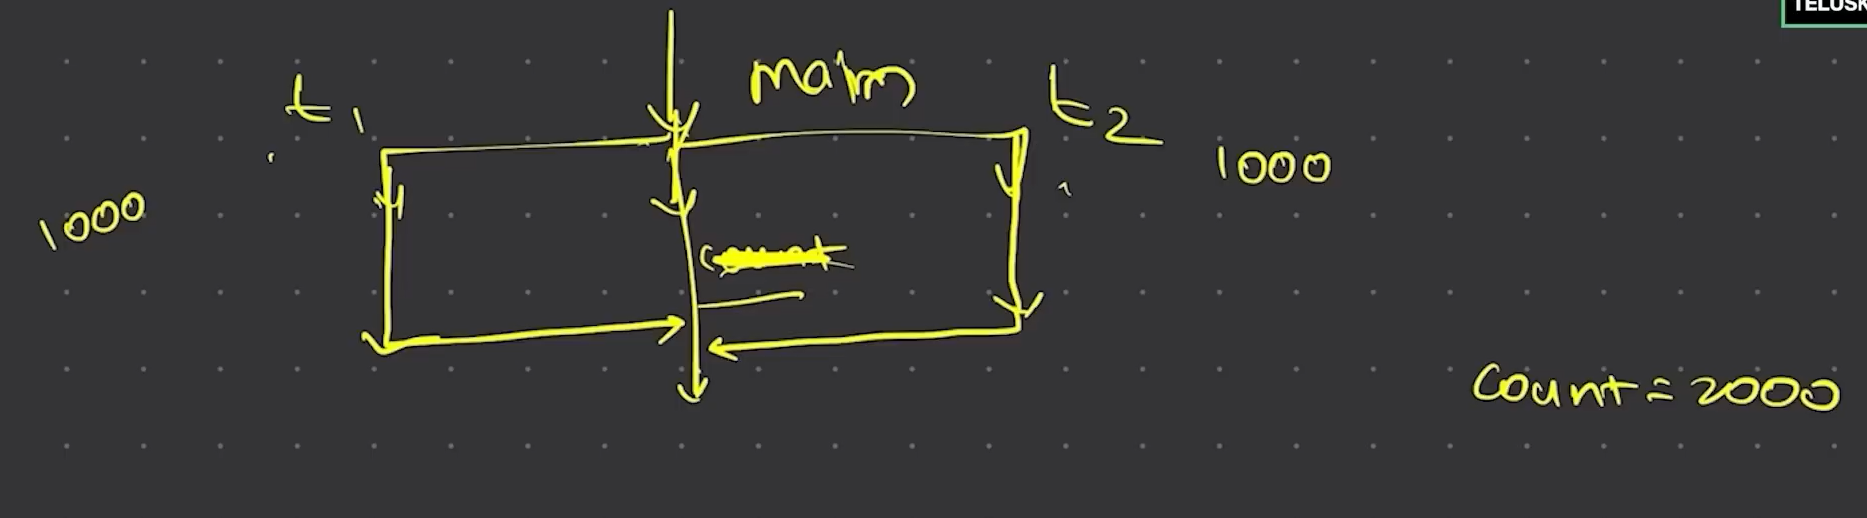 TELUSK
main
t1
t2
1000
1000
count
count = 2000